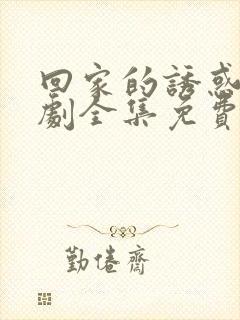 回家的誘惑
劇全集免費
勤倦齋